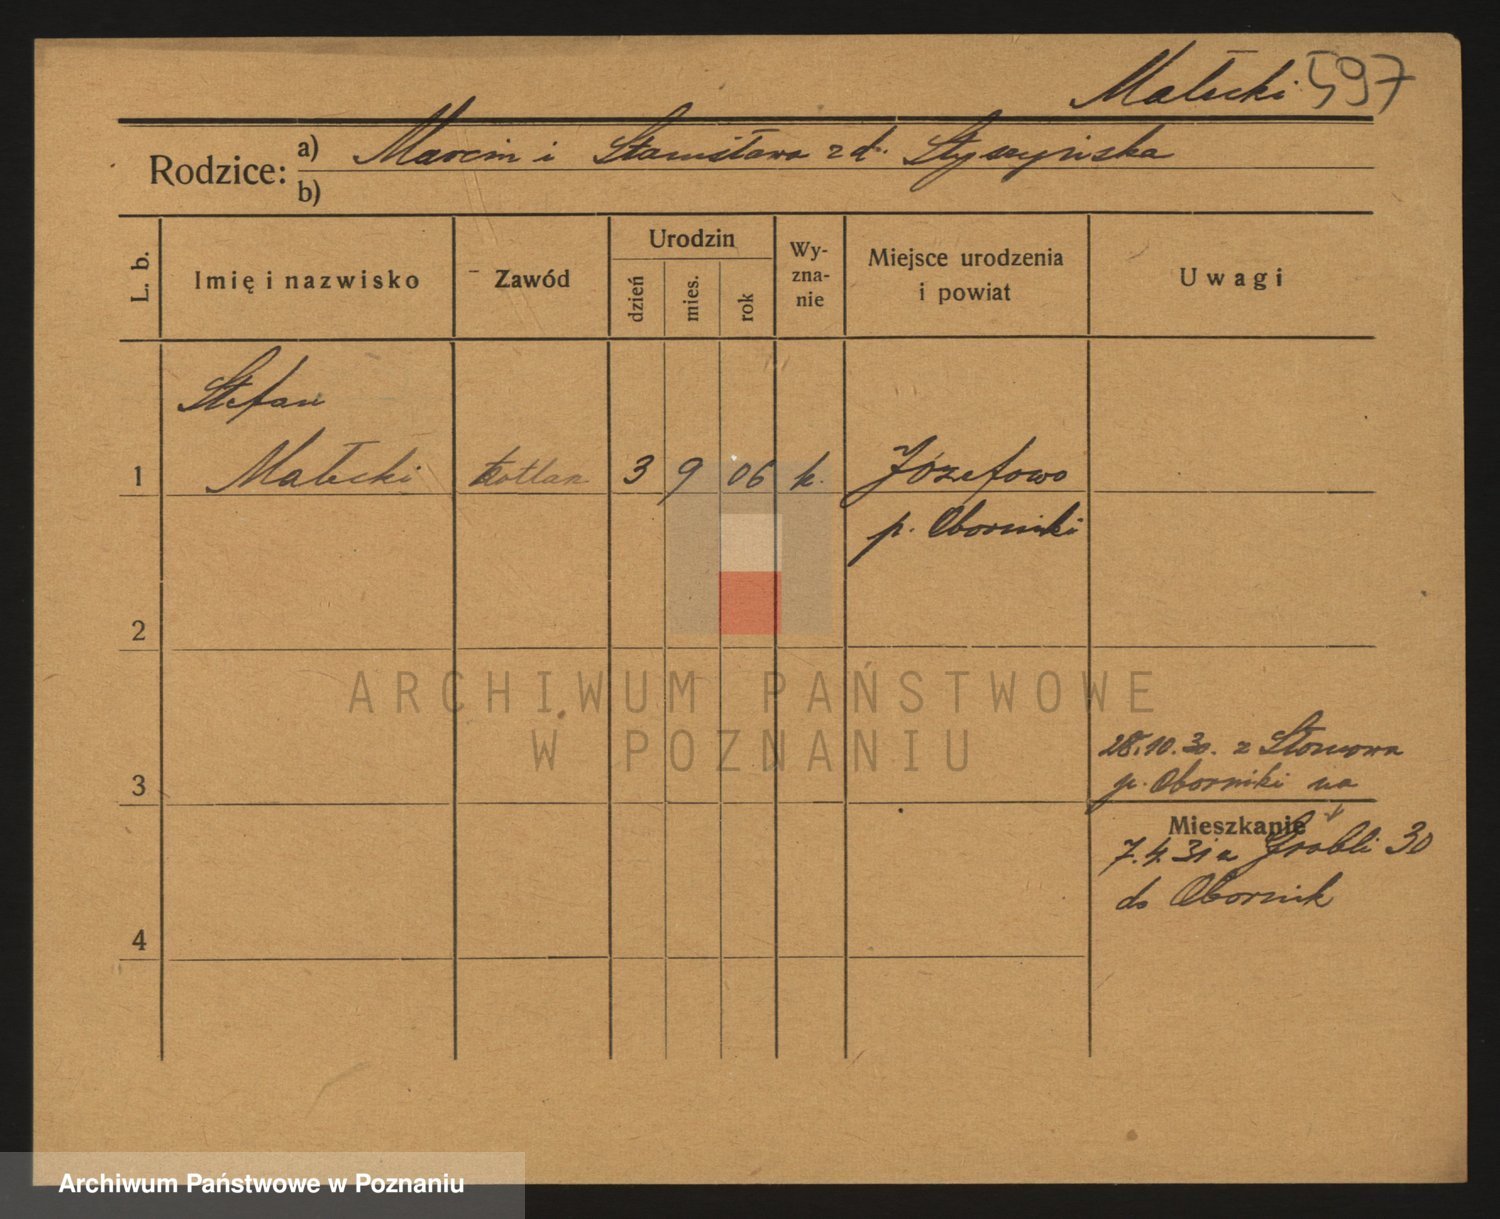 Małecki 597
Rodzice: a) Marcin i Stanisława z d. Styszyńska
b)
L. b. Imię i nazwisko Zawód Urodzin dzień mies. rok Wy-zna-nie Miejsce urodzenia i powiat Uwagi
Stefan
1 Małecki kotlarz 3 9 06 k. Józefowo
p. Oborniki
2
ARCHIWUM PAŃSTWOWE
W POZNANIU
28.10.30. z Słomowa
3 p. Oborniki na
Mieszkanie
7.4.31 z Grobli 30
do Obornik
4
Archiwum Państwowe w Poznaniu